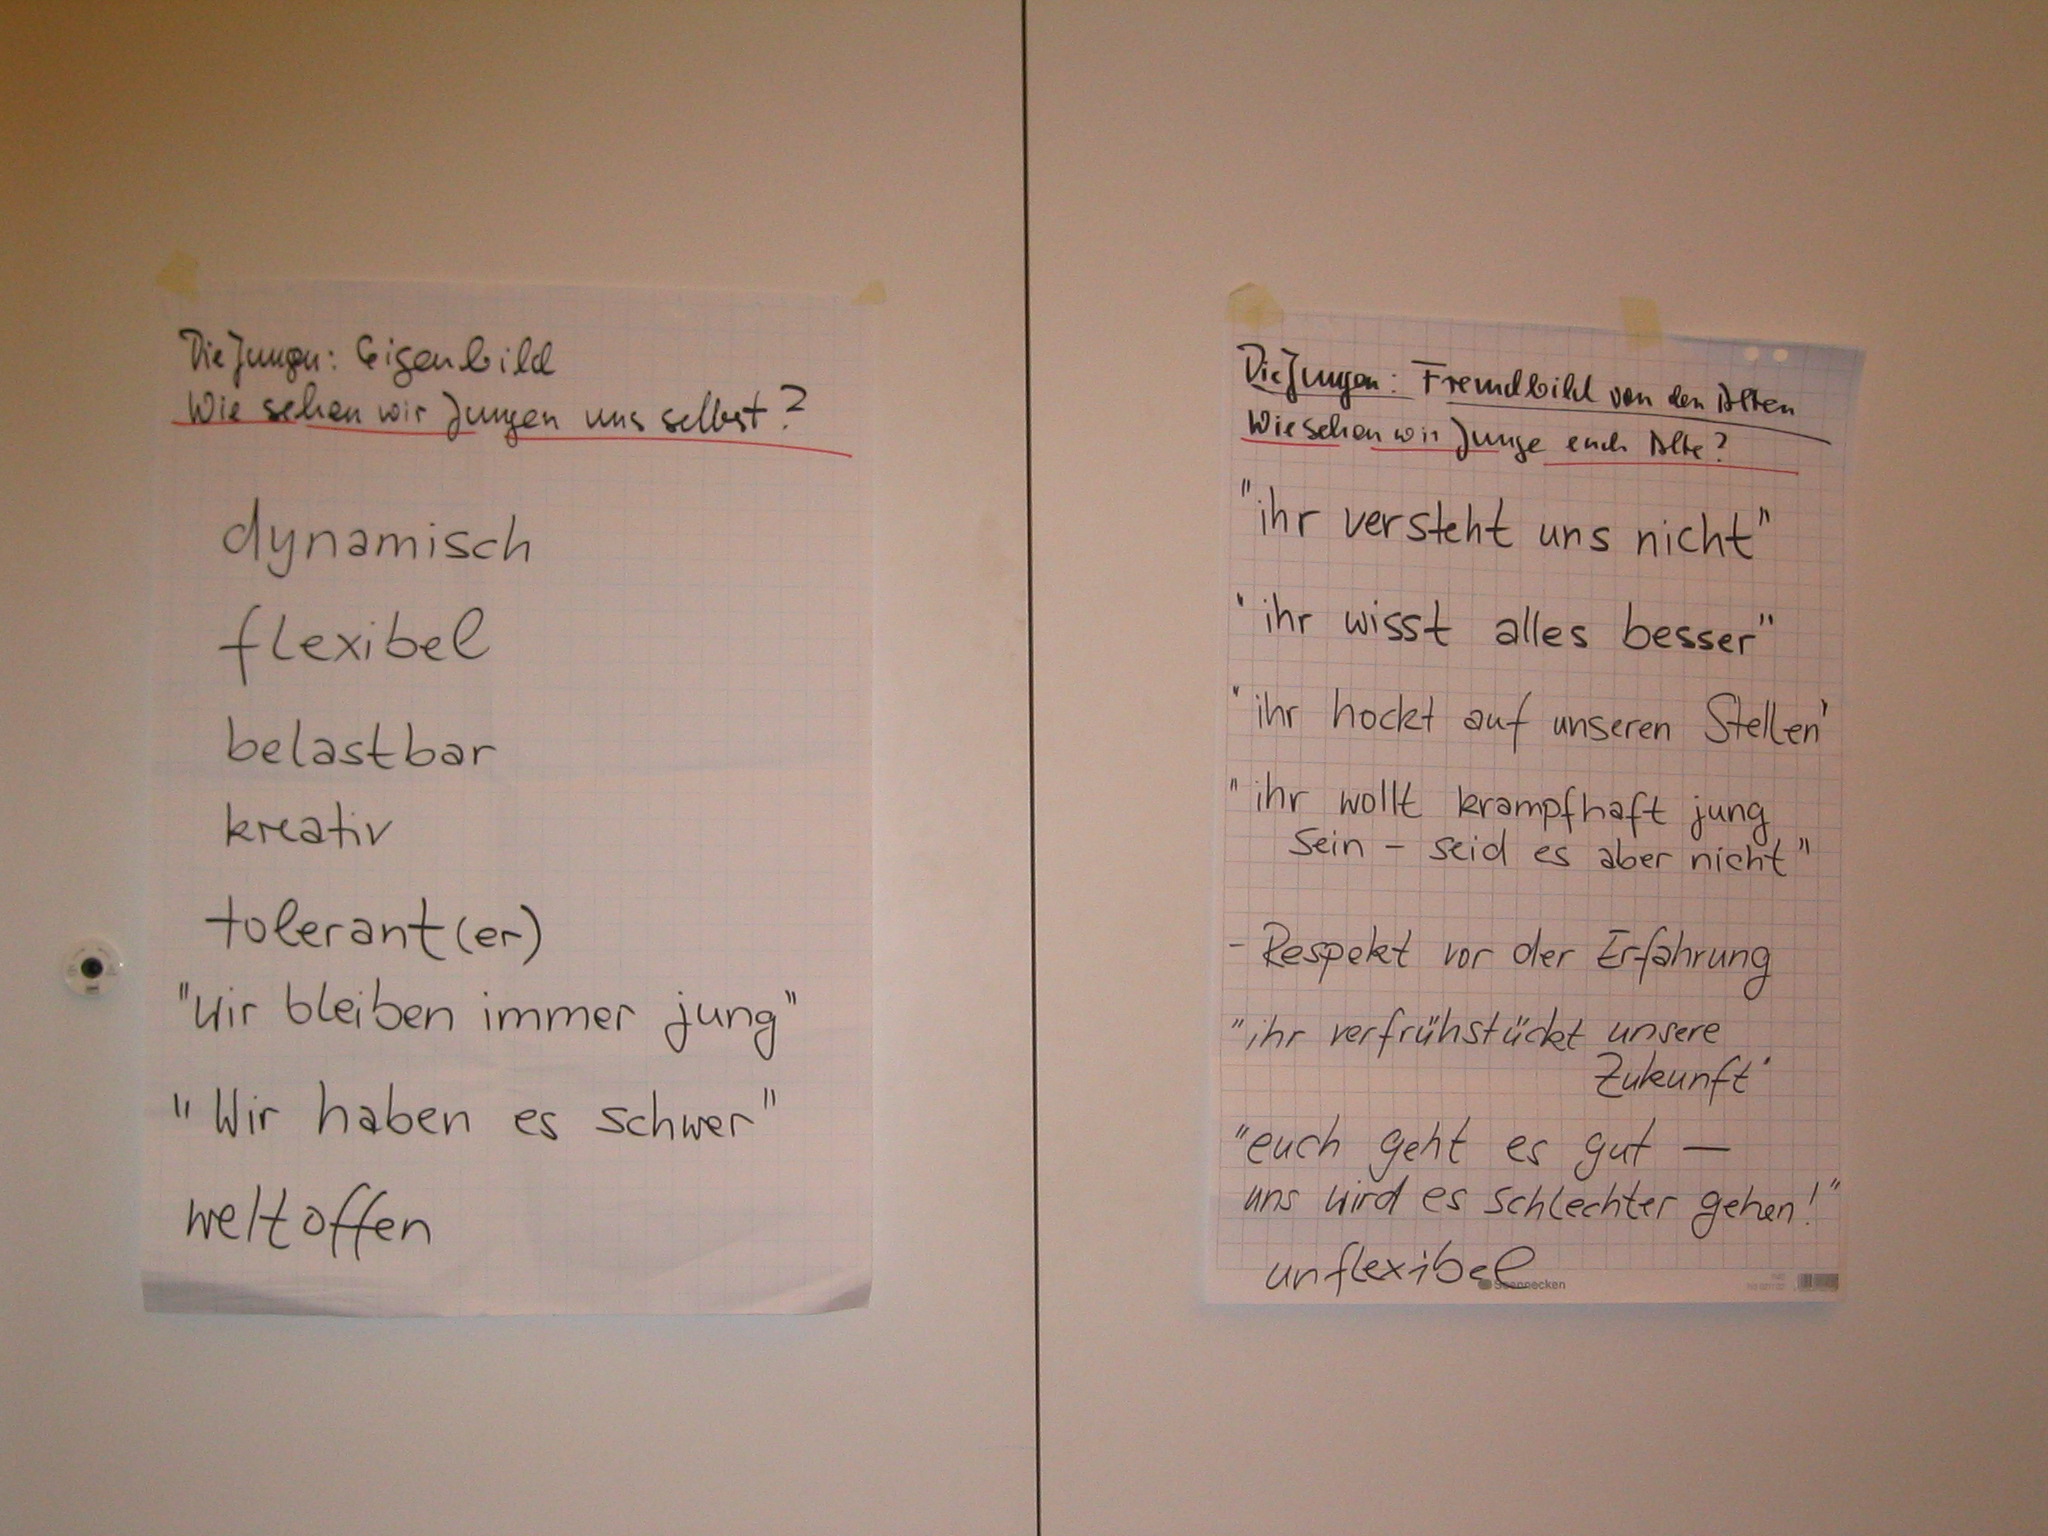 Die Jungen: Eigenbild
Wie sehen wir Jungen uns selbst?
dynamisch
flexibel
belastbar
kreativ
tolerant(er)
"Wir bleiben immer jung"
"Wir haben es schwer"
weltoffen
Die Jungen: Fremdbild von den Alten
Wie sehen wir Junge euch Alte?
"ihr versteht uns nicht"
"ihr wisst alles besser"
"ihr hockt auf unseren Stellen"
"ihr wollt krampfhaft jung
sein - seid es aber nicht"
- Respekt vor der Erfahrung
"ihr verfrühstückt unsere
Zukunft"
"euch geht es gut —
uns wird es schlechter gehen!"
unflexibel
Soennecken